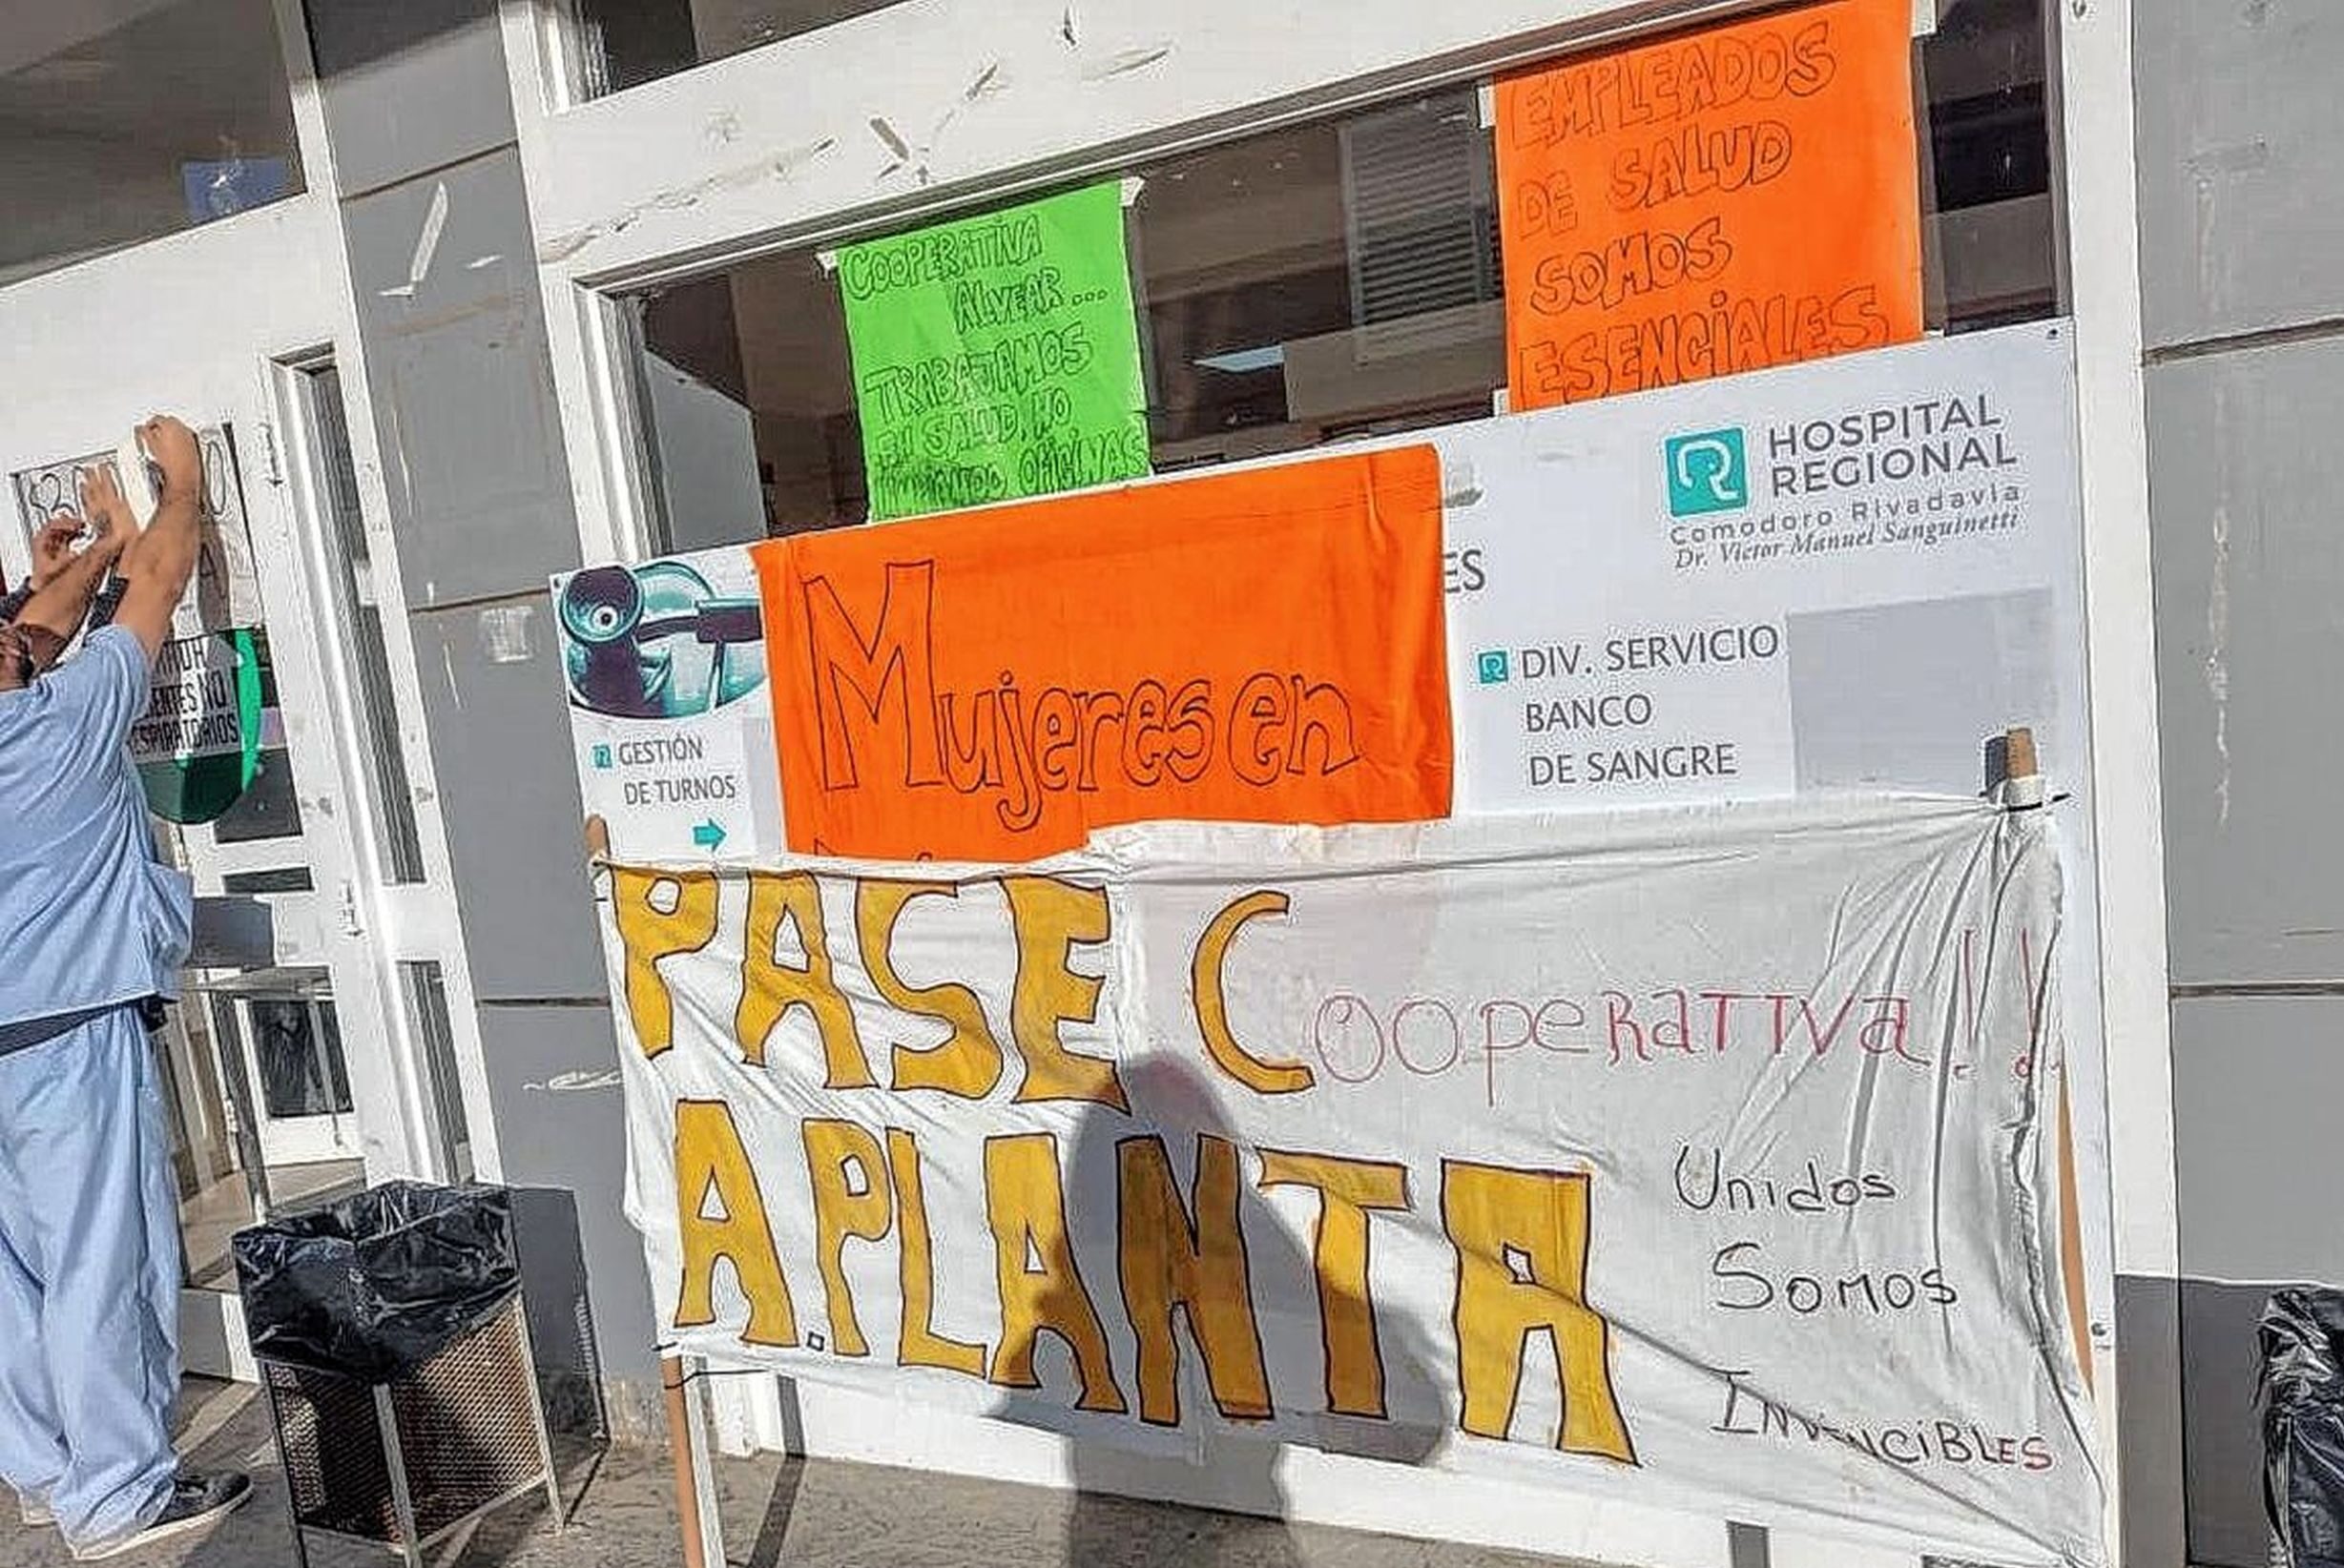 COOPERATIVA
ALVEAR...
TRABAJAMOS
EN SALUD, NO
LIMPIANDO OFICINAS
EMPLEADOS
DE SALUD
SOMOS
ESENCIALES
HOSPITAL
REGIONAL
Comodoro Rivadavia
Dr. Victor Manuel Sanguinetti
ES
Mujeres en
GESTIÓN
DE TURNOS
DIV. SERVICIO
BANCO
DE SANGRE
PASE COOPERATIVA!!
A.PLANTA
Unidos
SOMOS
INVENCIBLES
ENTES NO
ESPIRATORIOS